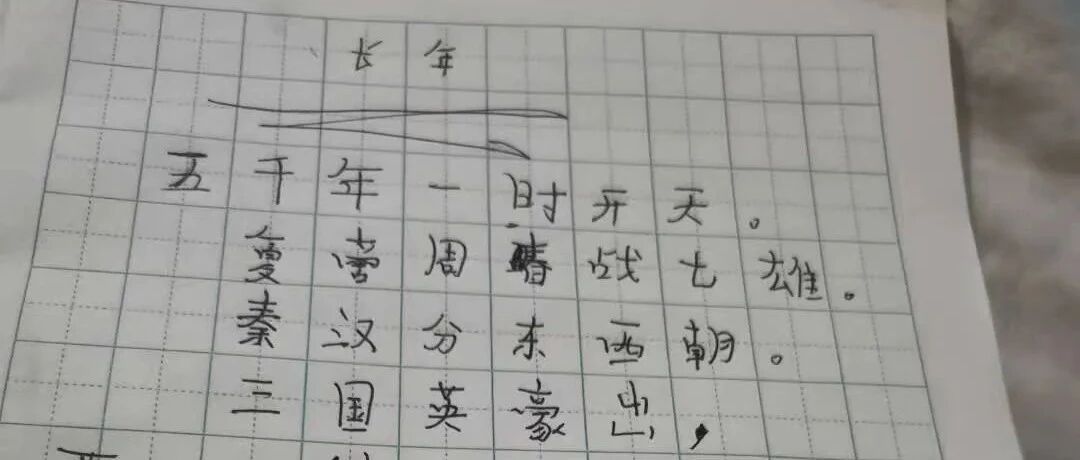 长年
五千年一时开天。
夏商周春战七雄。
秦汉分东西朝。
三国英豪出，